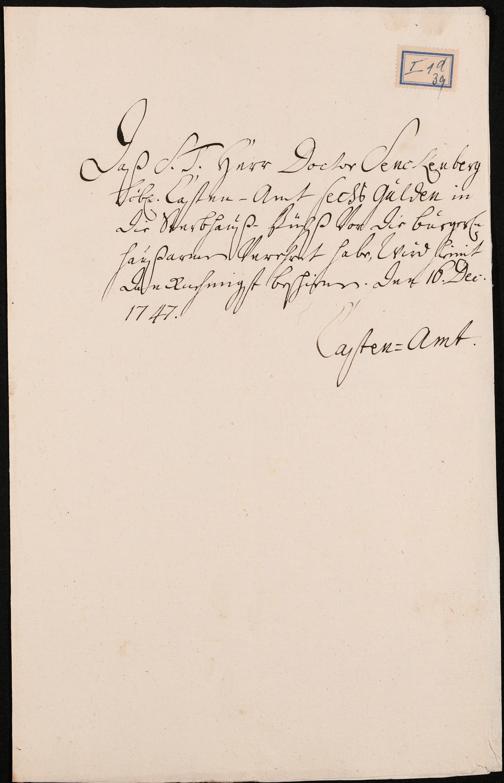 I 1 d
39
Daß S. T. Herr Doctor Senckenberg
löbl. Casten-Amt sechs Gulden in
die Sterbhauß- Büchß vor die bürgerl.
haußarme verehrt habe, wird hiemit
danknehmigst bescheinet. Den 16. Dec.
1747.
Casten=Amt.